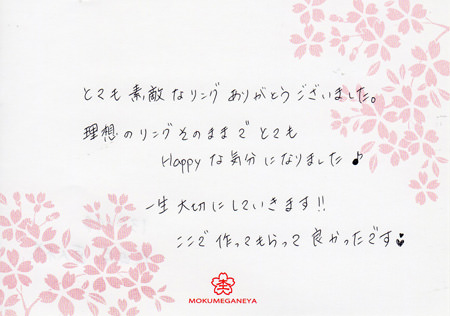 とても素敵なリングありがとうございました。
理想のリングそのままでとても
Happyな気分になりました♪
一生大切にしていきます!!
ここで作ってもらって良かったです♥
MOKUMEGANEYA